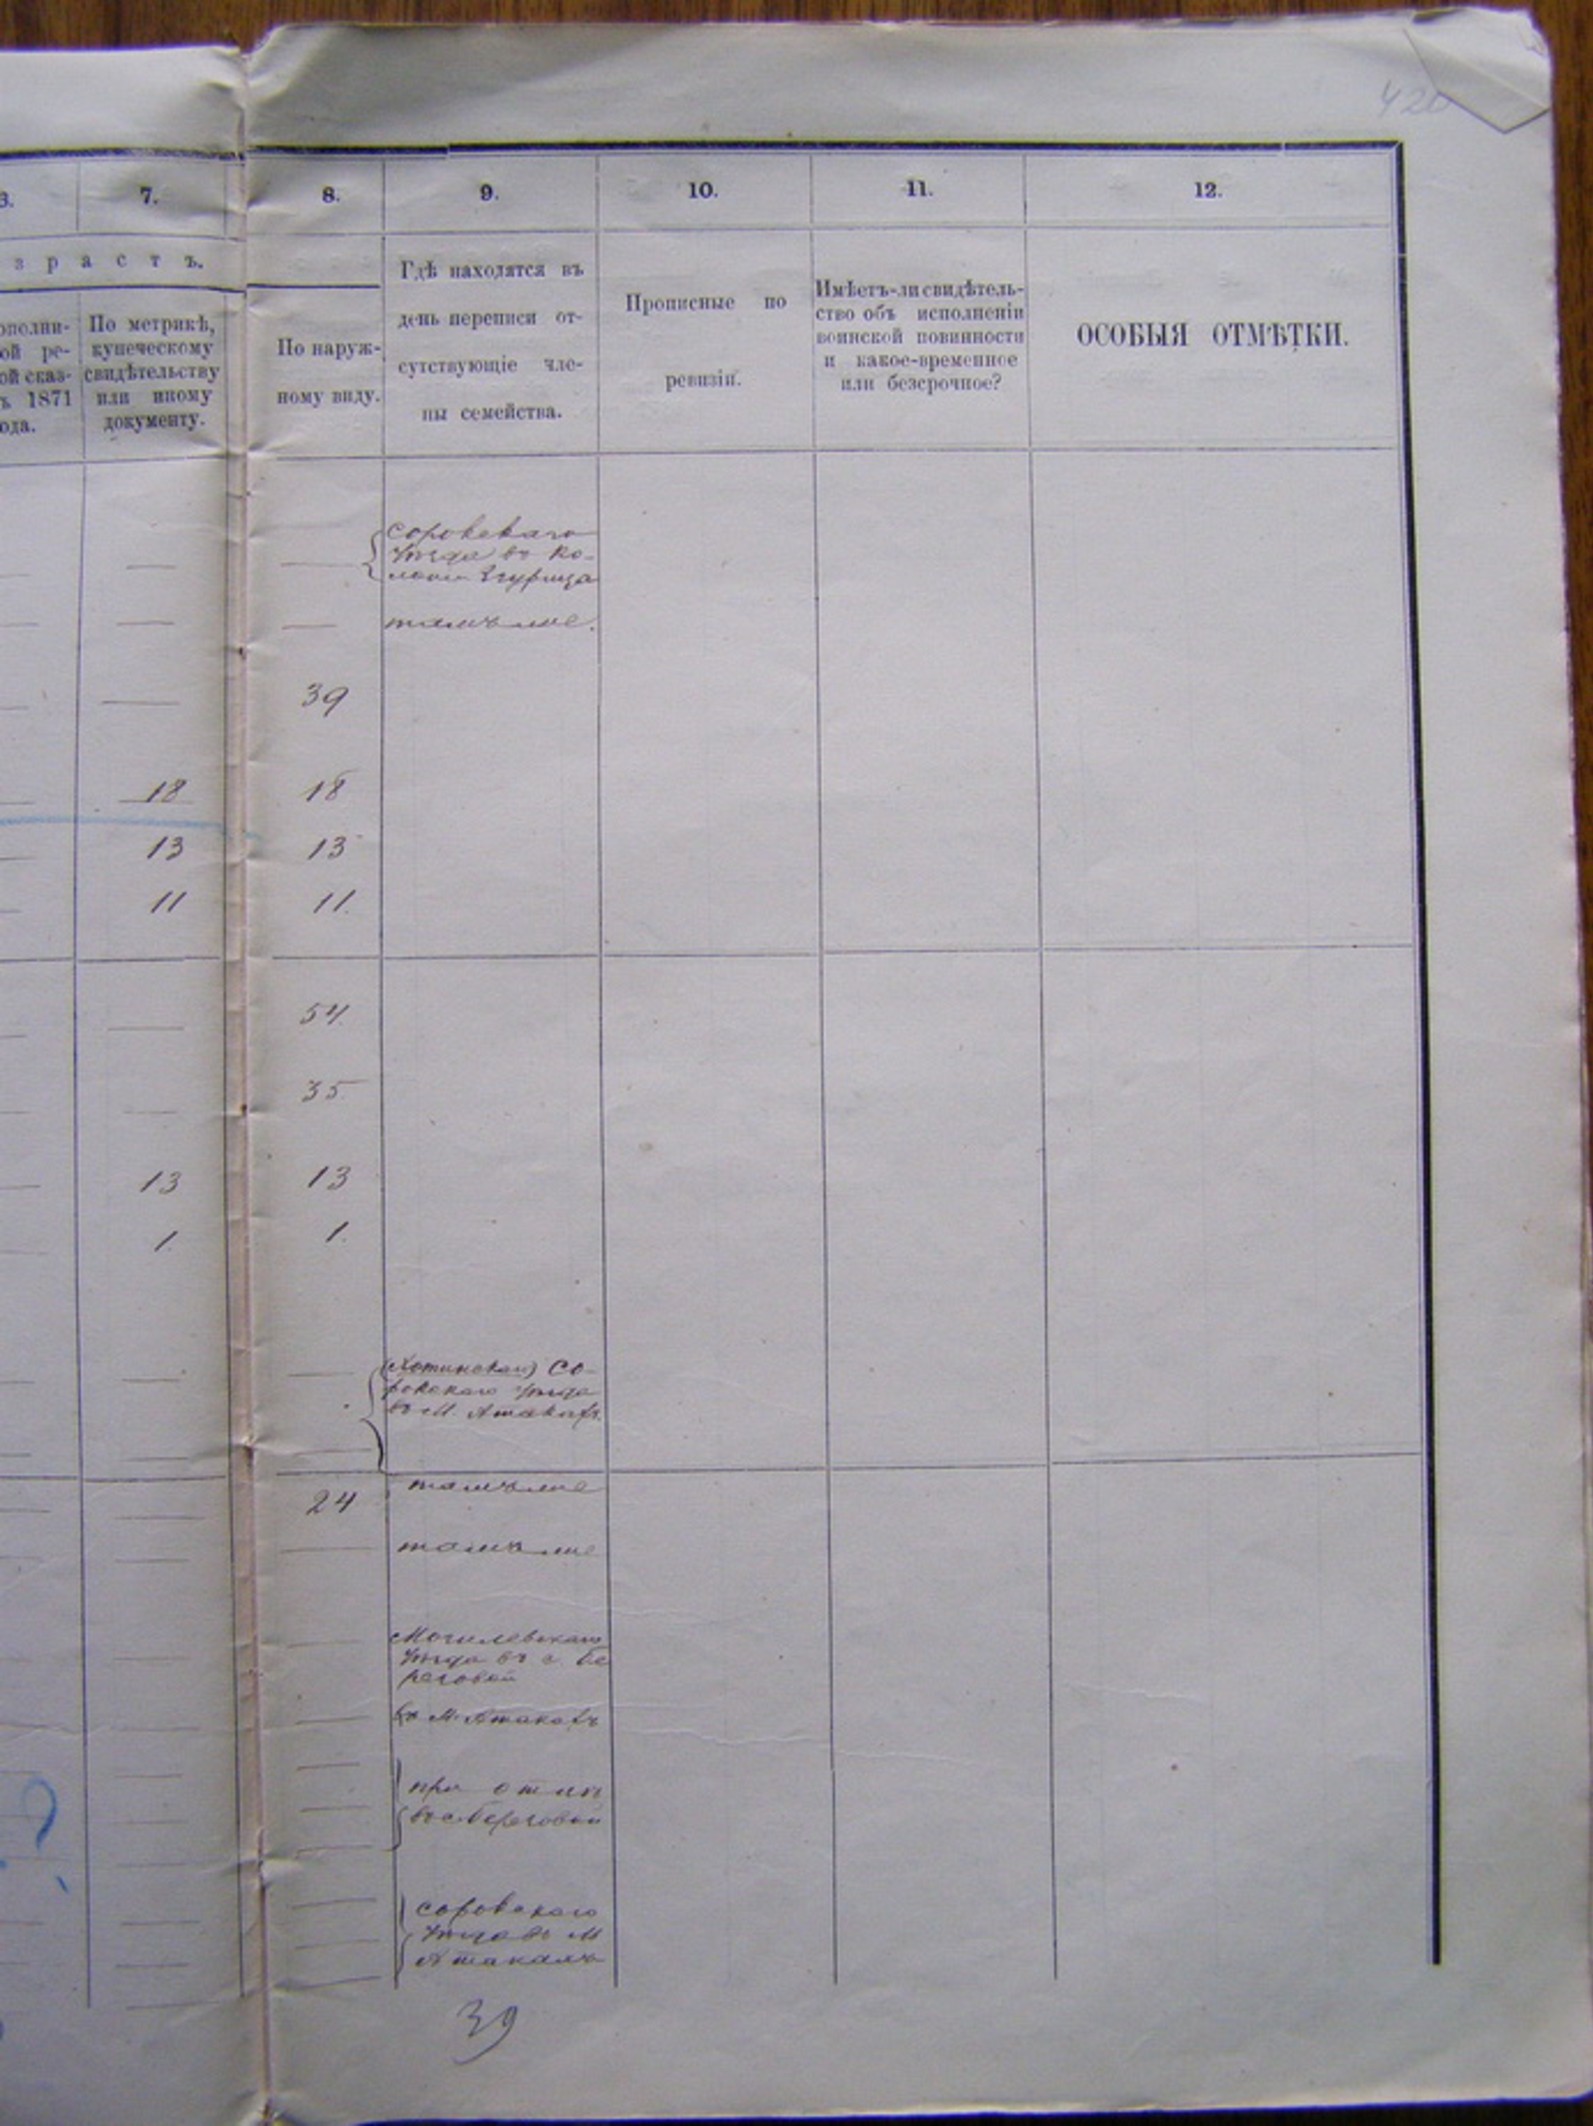 420
7. 8. 9. 10. 11. 12.
з р а с т ъ.
ополни-
ой ре-
ой сказ-
ъ 1871
ода.
По метрикѣ,
купеческому
свидѣтельству
или иному
документу.
По наруж-
ному виду.
Гдѣ находятся въ
день переписи от-
сутствующіе чле-
ны семейства.
Прописные по
ревизіи.
Имѣетъ-ли свидѣтель-
ство объ исполненіи
воинской повинности
и какое-временное
или безсрочное?
ОСОБЫЯ ОТМѢТКИ.
Сорокскаго
уѣзда въ ко-
лоніи Згурица
тамъ же.
39
18 18
13 13
11 11.
54
35
13 13
1. 1.
(Хотинскаго) Со-
рокскаго уѣзда
въ М. Атакахъ.
24 тамъ же
тамъ же
Могилевскаго
уѣзда въ с. Бе
реговой
въ М. Атакахъ
при отцѣ
въ с. Береговой
Сорокскаго
уѣзда въ М
Атакахъ
39